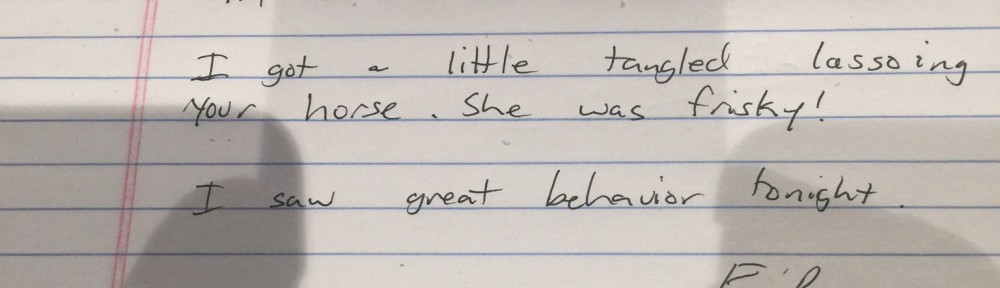 I got a little tangled lassoing
your horse. She was frisky!
I saw great behavior tonight.